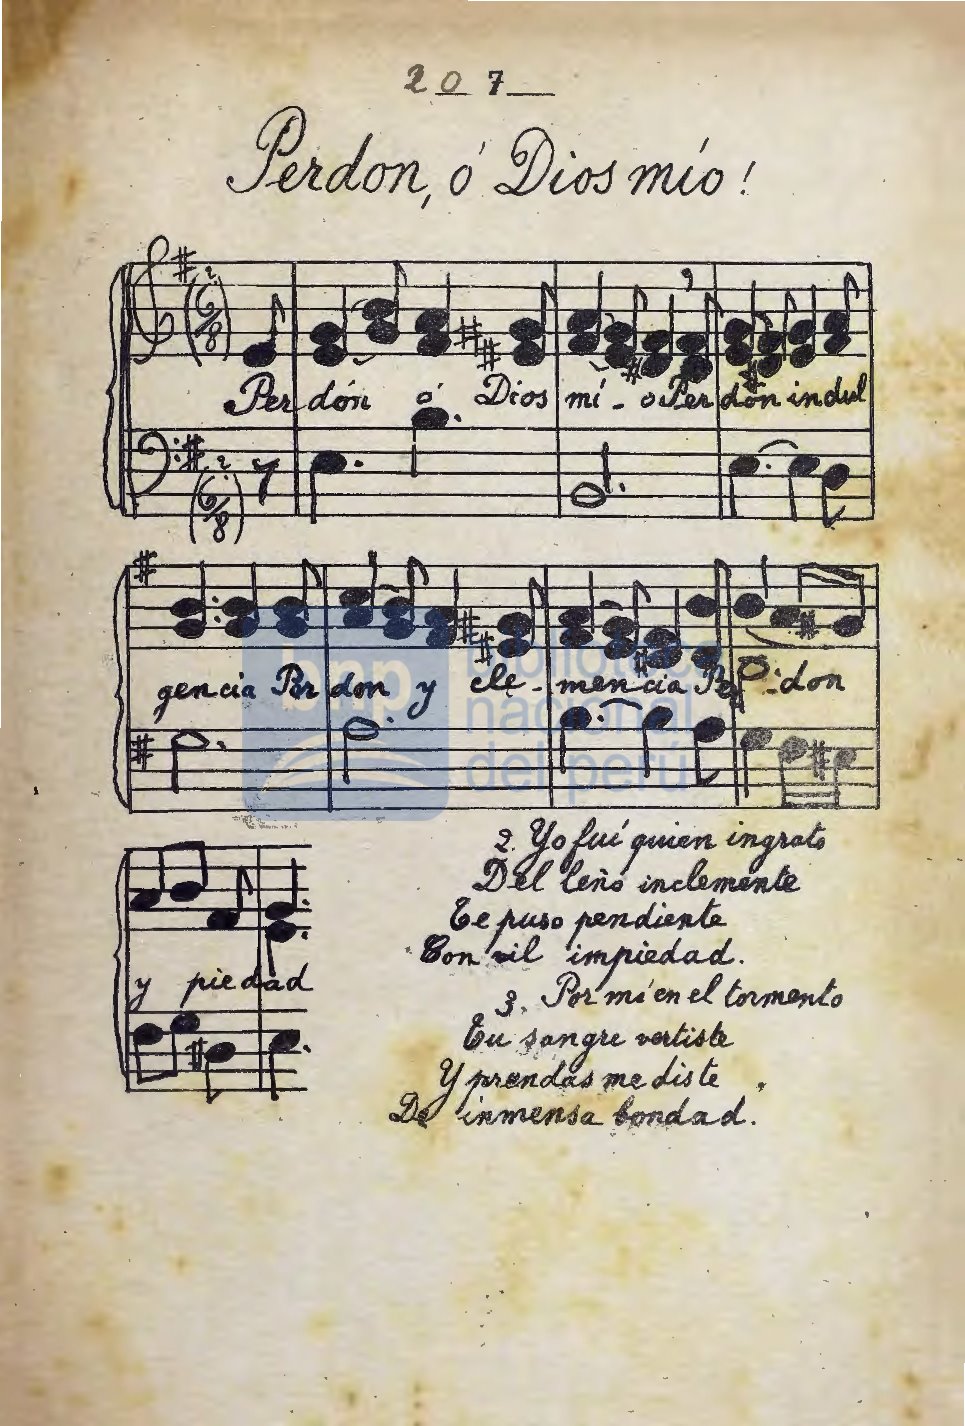 207
Perdon, ó Dios mío!
Perdón ó Dios mí-o Perdón indul
gencia Perdon y cle-mencia Per-don
y piedad
2. Yo fuí quien ingrato
Del leño inclemente
Te puso pendiente
Con vil impiedad.
3. Por mí en el tormento
Tu sangre vertiste
Y prendas me diste
De inmensa bondad.
bnp biblioteca
nacional
del perú